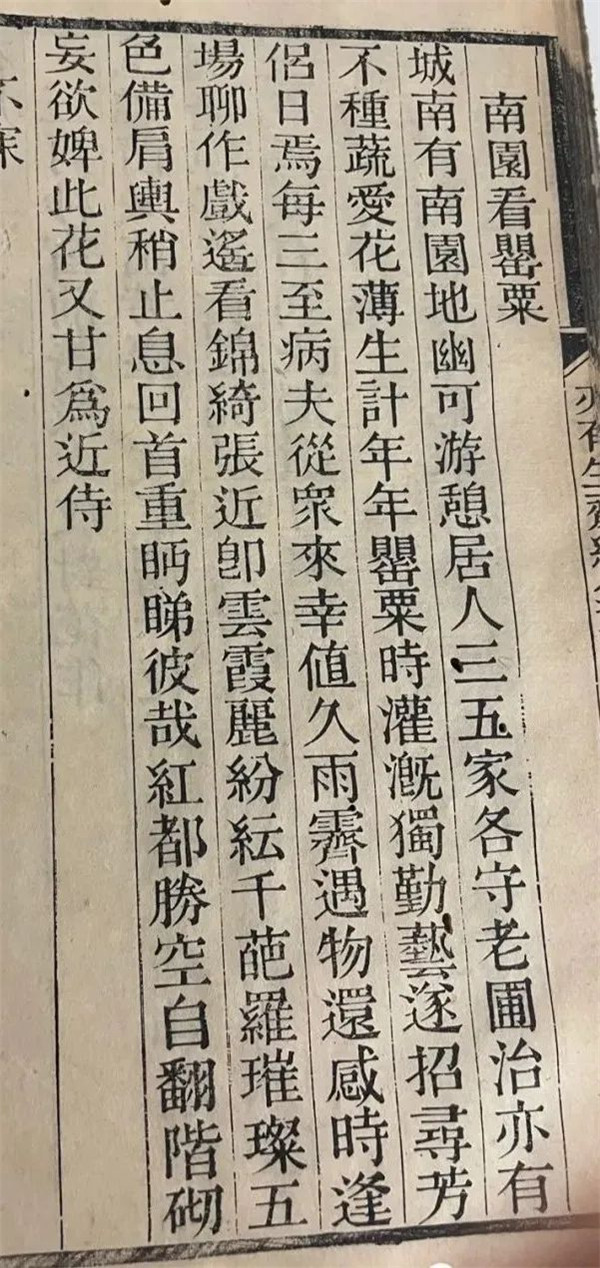 南園看罌粟
城南有南園地幽可游憩居人三五家各守老圃治亦有
不種蔬愛花薄生計年年罌粟時灌溉獨勤藝遂招尋芳
侶日焉每三至病夫從衆來幸值久雨霽遇物還感時逢
場聊作戲遙看錦綺張近卽雲霞麗紛紜千葩羅璀璨五
色備肩輿稍止息回首重眄睇彼哉紅都勝空自翻階砌
妄欲婢此花又甘爲近侍